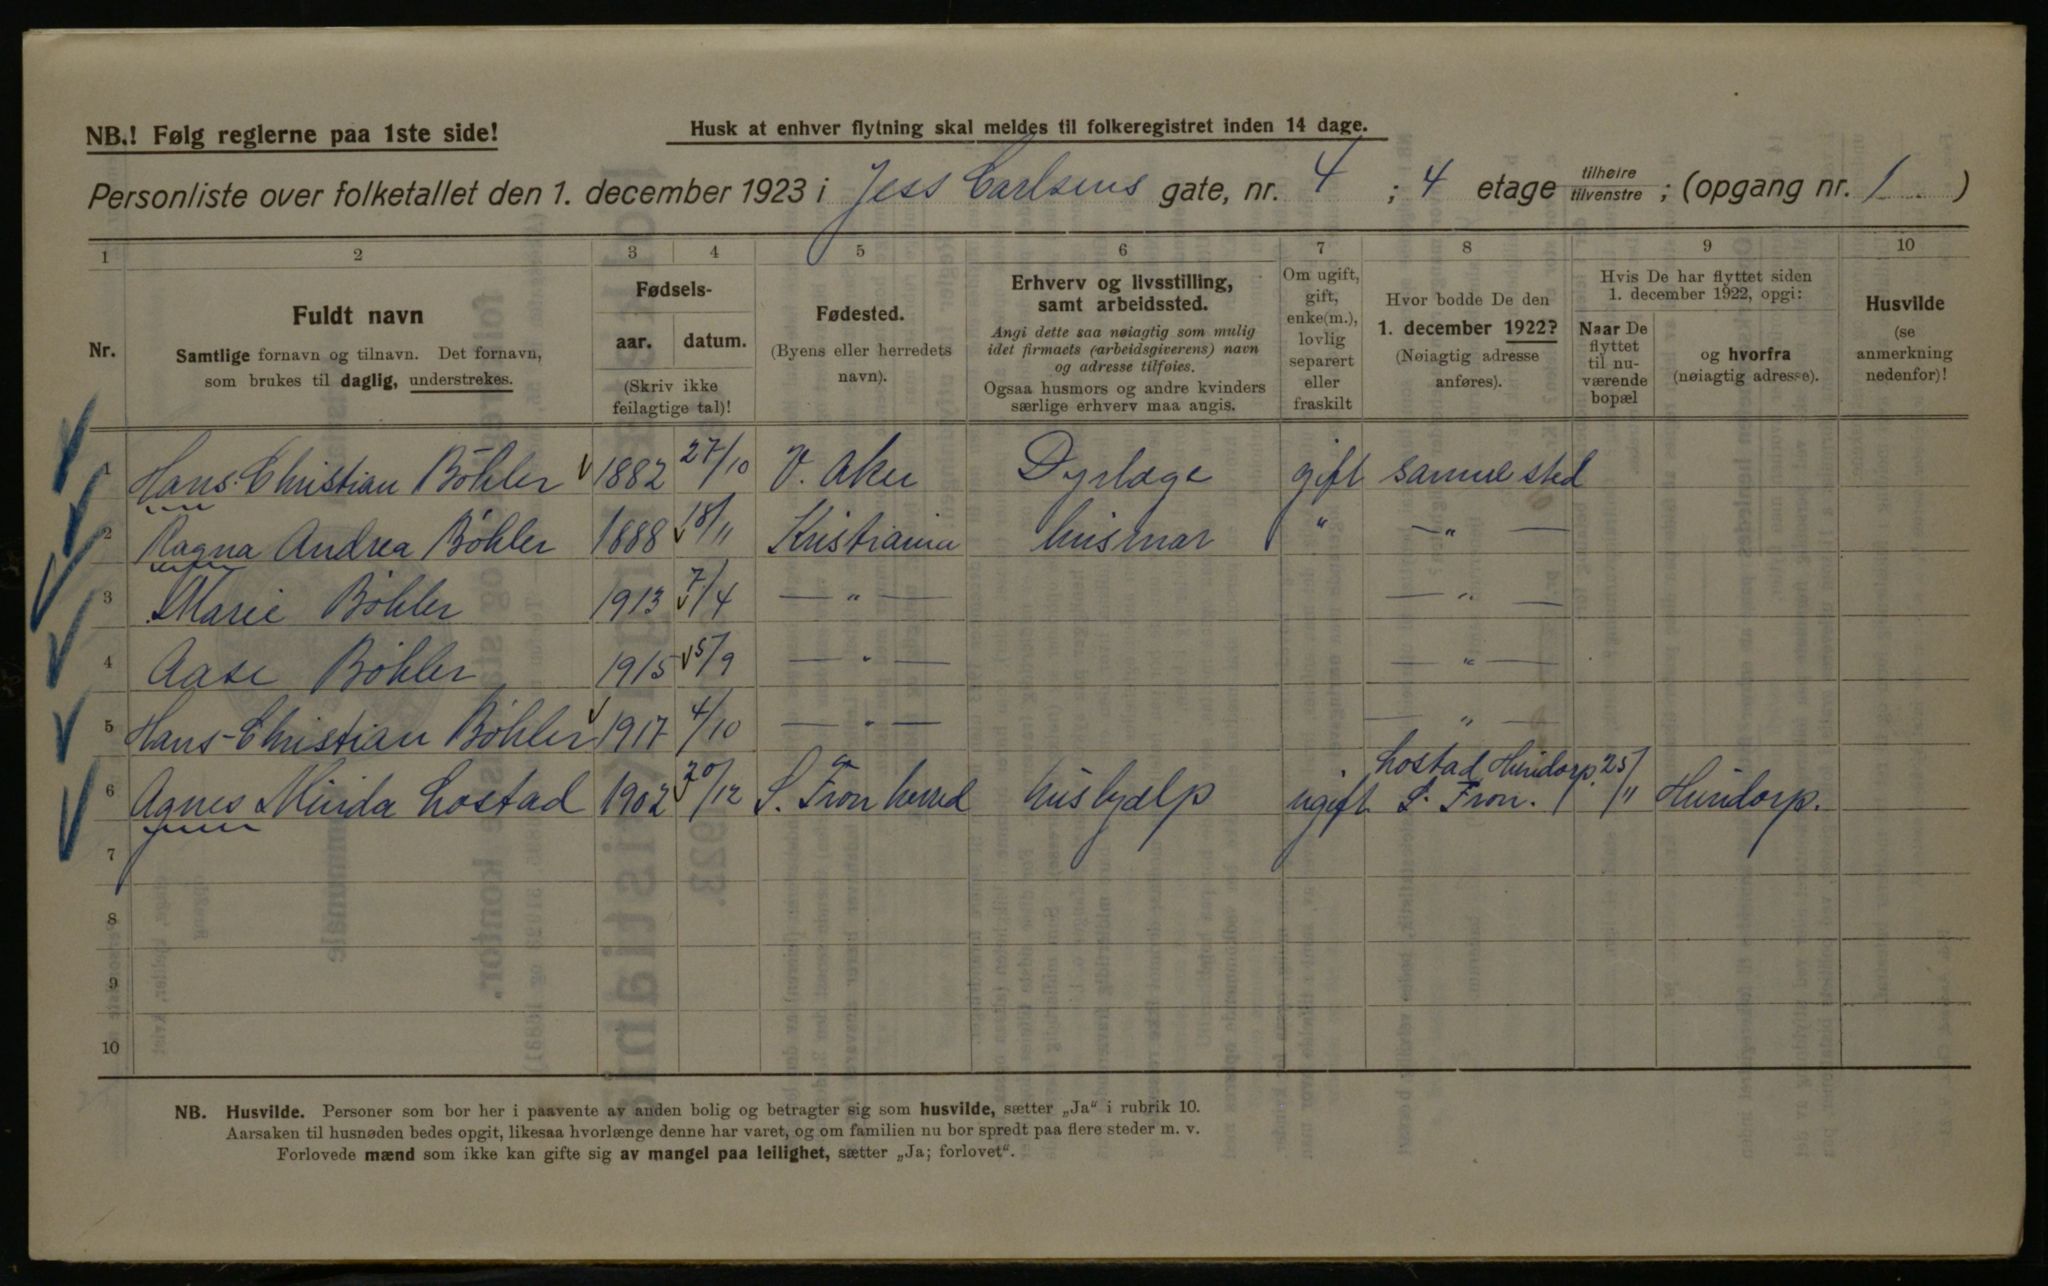 NB.! Følg reglerne paa 1ste side!
Husk at enhver flytning skal meldes til folkeregistret inden 14 dage.
Personliste over folketallet den 1. december 1923 i Jess Carlsens gate, nr. 4 ; 4 etage tilheire tilvenstre ; (opgang nr. 1 )
1 2 3 4 5 6 7 8 9 10
Nr.
Fuldt navn
Samtlige fornavn og tilnavn. Det fornavn,
som brukes til daglig, understrekes.
Fødsels-
aar. datum.
(Skriv ikke
feilagtige tal)!
Fødested.
(Byens eller herredets
navn).
Erhverv og livsstilling,
samt arbeidssted.
Angi dette saa nøiagtig som mulig
idet firmaets (arbeidsgiverens) navn
og adresse tilføies.
Ogsaa husmors og andre kvinders
særlige erhverv maa angis.
Om ugift,
gift,
enke(m.),
lovlig
separert
eller
fraskilt
Hvor bodde De den
1. december 1922?
(Nøiagtig adresse
anføres).
Hvis De har flyttet siden
1. december 1922, opgi:
Naar De
flyttet
til nu-
værende
bopæl
og hvorfra
(nøiagtig adresse).
Husvilde
(se
anmerkning
nedenfor)!
1 Hans Christian Böhler 1882 27/10 V. Aker Dyrlæge gift samme sted
2 Ragna Andrea Böhler 1888 18/11 Kristiania husmor " — " —
3 Marie Böhler 1913 7/4 — " — — " —
4 Aase Böhler 1915 5/9 — " — — " —
5 Hans-Christian Böhler 1917 4/10 — " — — " —
6 Agnes Minda Lostad 1902 20/12 S. Fron herred hushjælp ugift Lostad Hundorp. S. Fron. 25/11 Hundorp.
7
8
9
10
NB. Husvilde. Personer som bor her i paavente av anden bolig og betragter sig som husvilde, sætter „Ja“ i rubrik 10.
Aarsaken til husnøden bedes opgit, likesaa hvorlænge denne har varet, og om familien nu bor spredt paa flere steder m. v.
Forlovede mænd som ikke kan gifte sig av mangel paa leilighet, sætter „Ja; forlovet“.